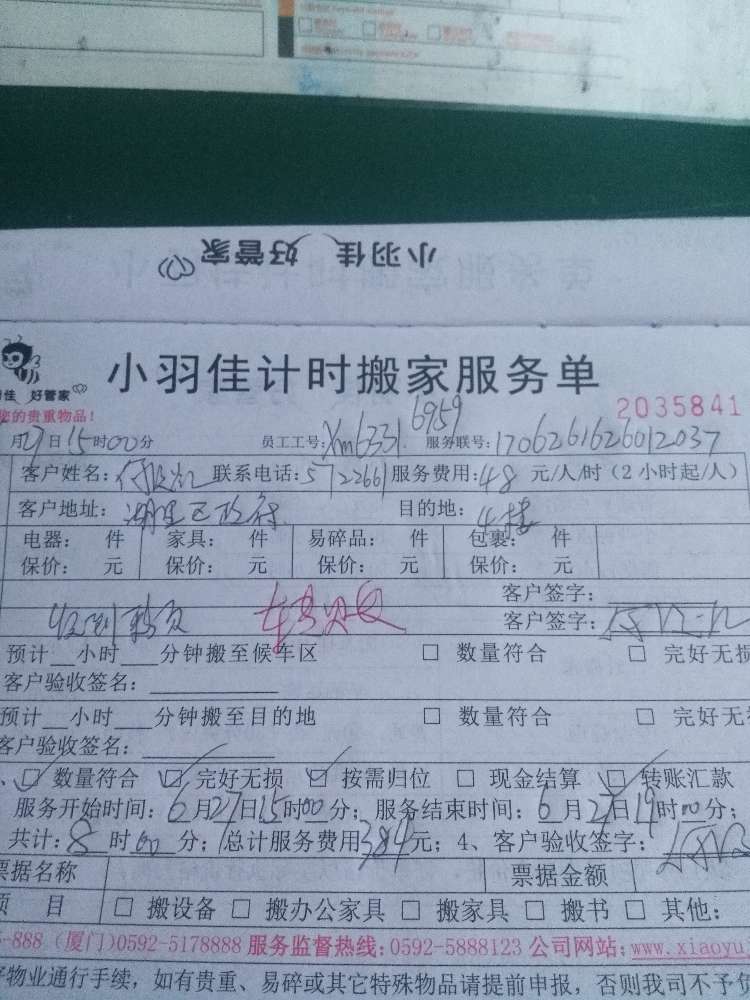 小羽佳 好管家
小羽佳计时搬家服务单
佳 好管家
您的贵重物品! 2035841
月27日15时00分 员工工号:Xm6331 6959 服务联号:1706261626012037
客户姓名: 联系电话:5722661 服务费用:48 元/人/时(2小时起/人)
客户地址:湖里区政府 目的地:4楼
电器: 件 家具: 件 易碎品: 件 包裹: 件
保价: 元 保价: 元 保价: 元 保价: 元
客户签字:
收到 客户签字:
预计__小时___分钟搬至候车区 □ 数量符合 □ 完好无损
客户验收签名:
预计__小时___分钟搬至目的地 □ 数量符合 □ 完好无
客户验收签名:
、☑ 数量符合 ☑ 完好无损 ☑ 按需归位 □ 现金结算 ☑ 转账汇款
服务开始时间:6月27日15时00分;服务结束时间:6月27日19时00分;
共计:8时00分;总计服务费用384元;4、客户验收签字:
票据名称 票据金额
项 目 □ 搬设备 □ 搬办公家具 □ 搬家具 □ 搬书 □ 其他:
-888 (厦门)0592-5178888 服务监督热线:0592-5888123 公司网站:www.xiaoyu
物业通行手续,如有贵重、易碎或其它特殊物品请提前申报,否则我司不予